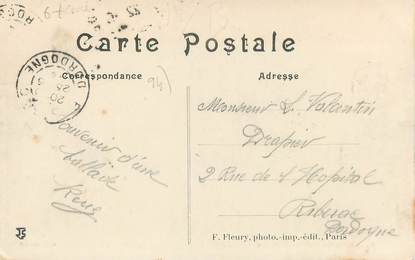 Carte Postale
Correspondance
Adresse
DORDOGNE
94
Souvenir d'une
Monsieur L. Valantin
Drapier
2 Rue de l'Hopital
Riberac
Dordogne
F. Fleury, photo.-imp.-édit., Paris